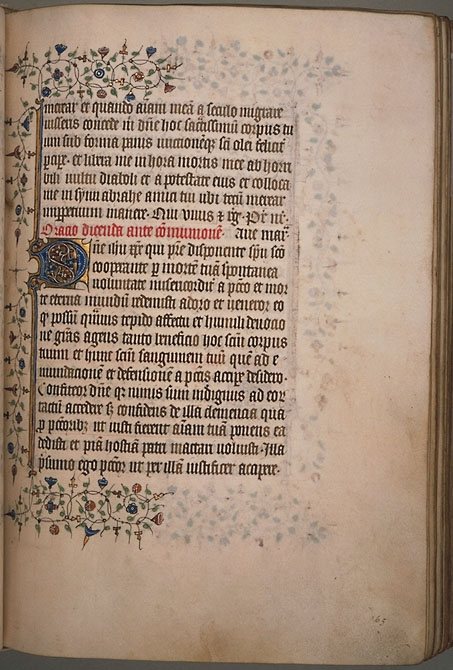 merear et quando aīam meā a seculo migrare
iusseris concede m̄ dn̄e hoc sāctissimū corpus tu
um sub forma panis unctionēqȝ sc̄i olei feliciter
ꝑcipe · et libera me in hora mortis mee ab horri
bili visu diaboli et a potestate eius et colloca
me in synu abrahe amici tui ubi tecū merear
imperpetuum manere · Qui viuis ⁊ Pr̄ nr̄ ·
Oracio dicenda ante cōmunionē · Aue mar̄ ·
Dn̄e ihū xp̄e qui pr̄e disponente sp̄u sc̄o
cooperante ꝑ mortē tuā spontanea
voluntate misericordit̄ a pc̄co et mor
te eterna mundū redemisti adoro et veneror eo
qȝ possū quāuis tepido affectu et humili deuocio
ne gr̄as agens tanto beneficio hoc scm̄ corpus
tuum et hunc scm̄ sanguinem tuū quē ad e
mundacionē et defensionē a pc̄tis accipe desidero ·
Confiteor dn̄e qȝ nimis sum indignus ad eor
tactū accedere sȝ confidens de illa clemencia quā
ꝓ pc̄coribȝ ut iusti fierent aīam tuā ponens ea
dedisti et piā hostiā patri mactari voluisti · Illā
p̄sumo ego pc̄cor ut per illā iustificer accipere ·
65